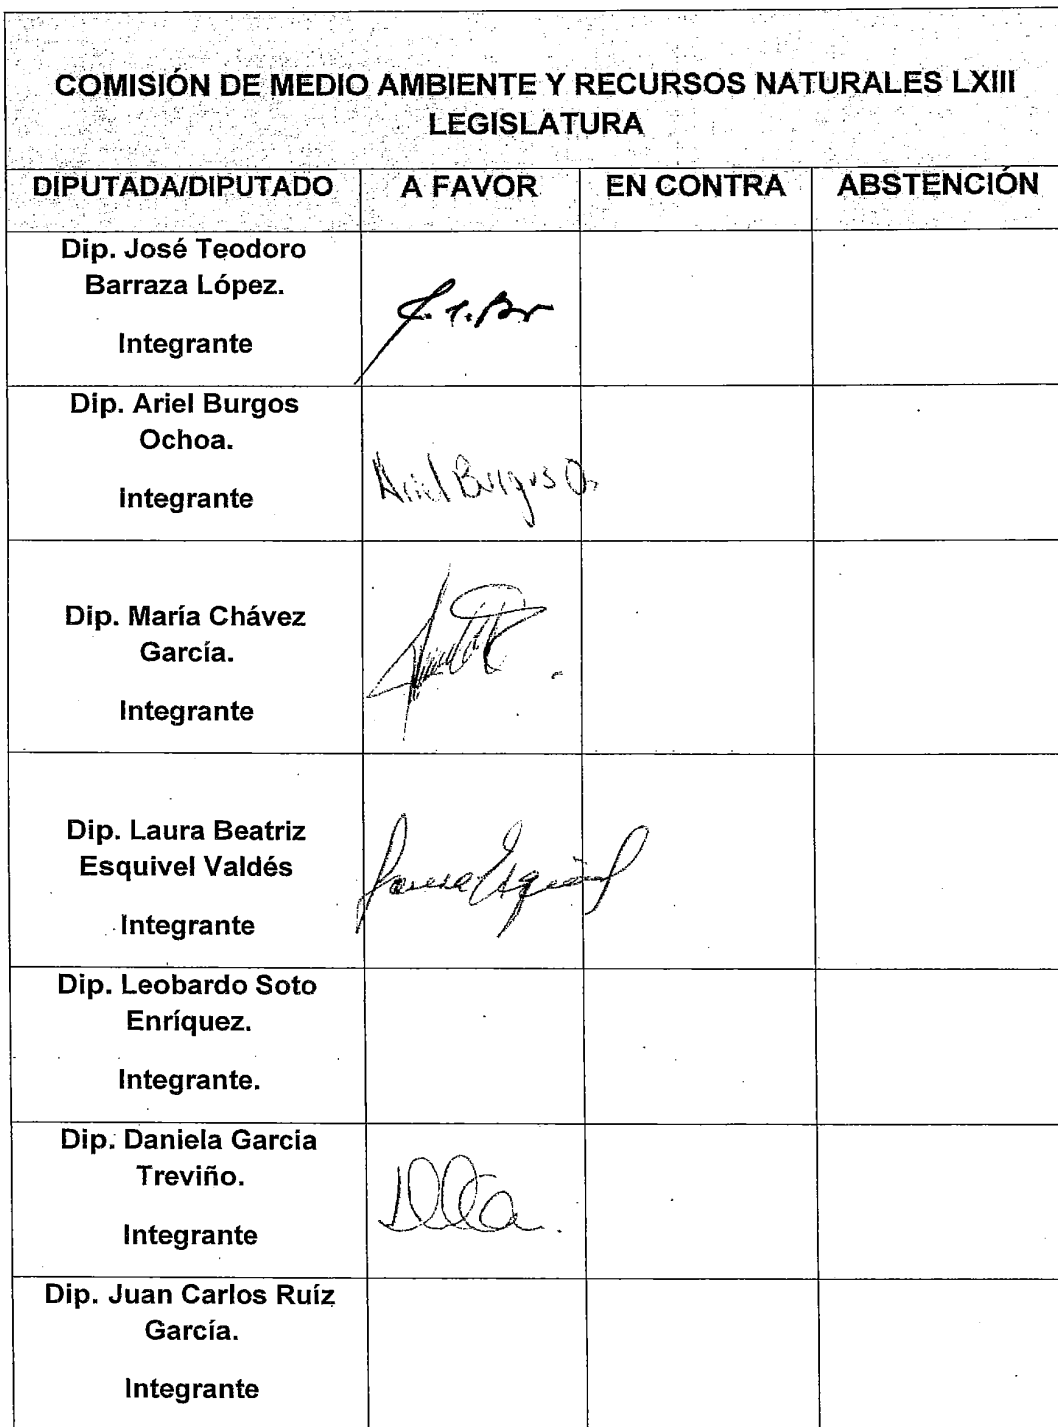 COMISIÓN DE MEDIO AMBIENTE Y RECURSOS NATURALES LXIII
LEGISLATURA
DIPUTADA/DIPUTADO A FAVOR EN CONTRA ABSTENCIÓN
Dip. José Teodoro
Barraza López.
Integrante
Dip. Ariel Burgos
Ochoa.
Integrante
Ariel Burgos O.
Dip. María Chávez
García.
Integrante
Dip. Laura Beatriz
Esquivel Valdés
Integrante
Laura Esquivel
Dip. Leobardo Soto
Enríquez.
Integrante.
Dip. Daniela García
Treviño.
Integrante
Dip. Juan Carlos Ruíz
García.
Integrante